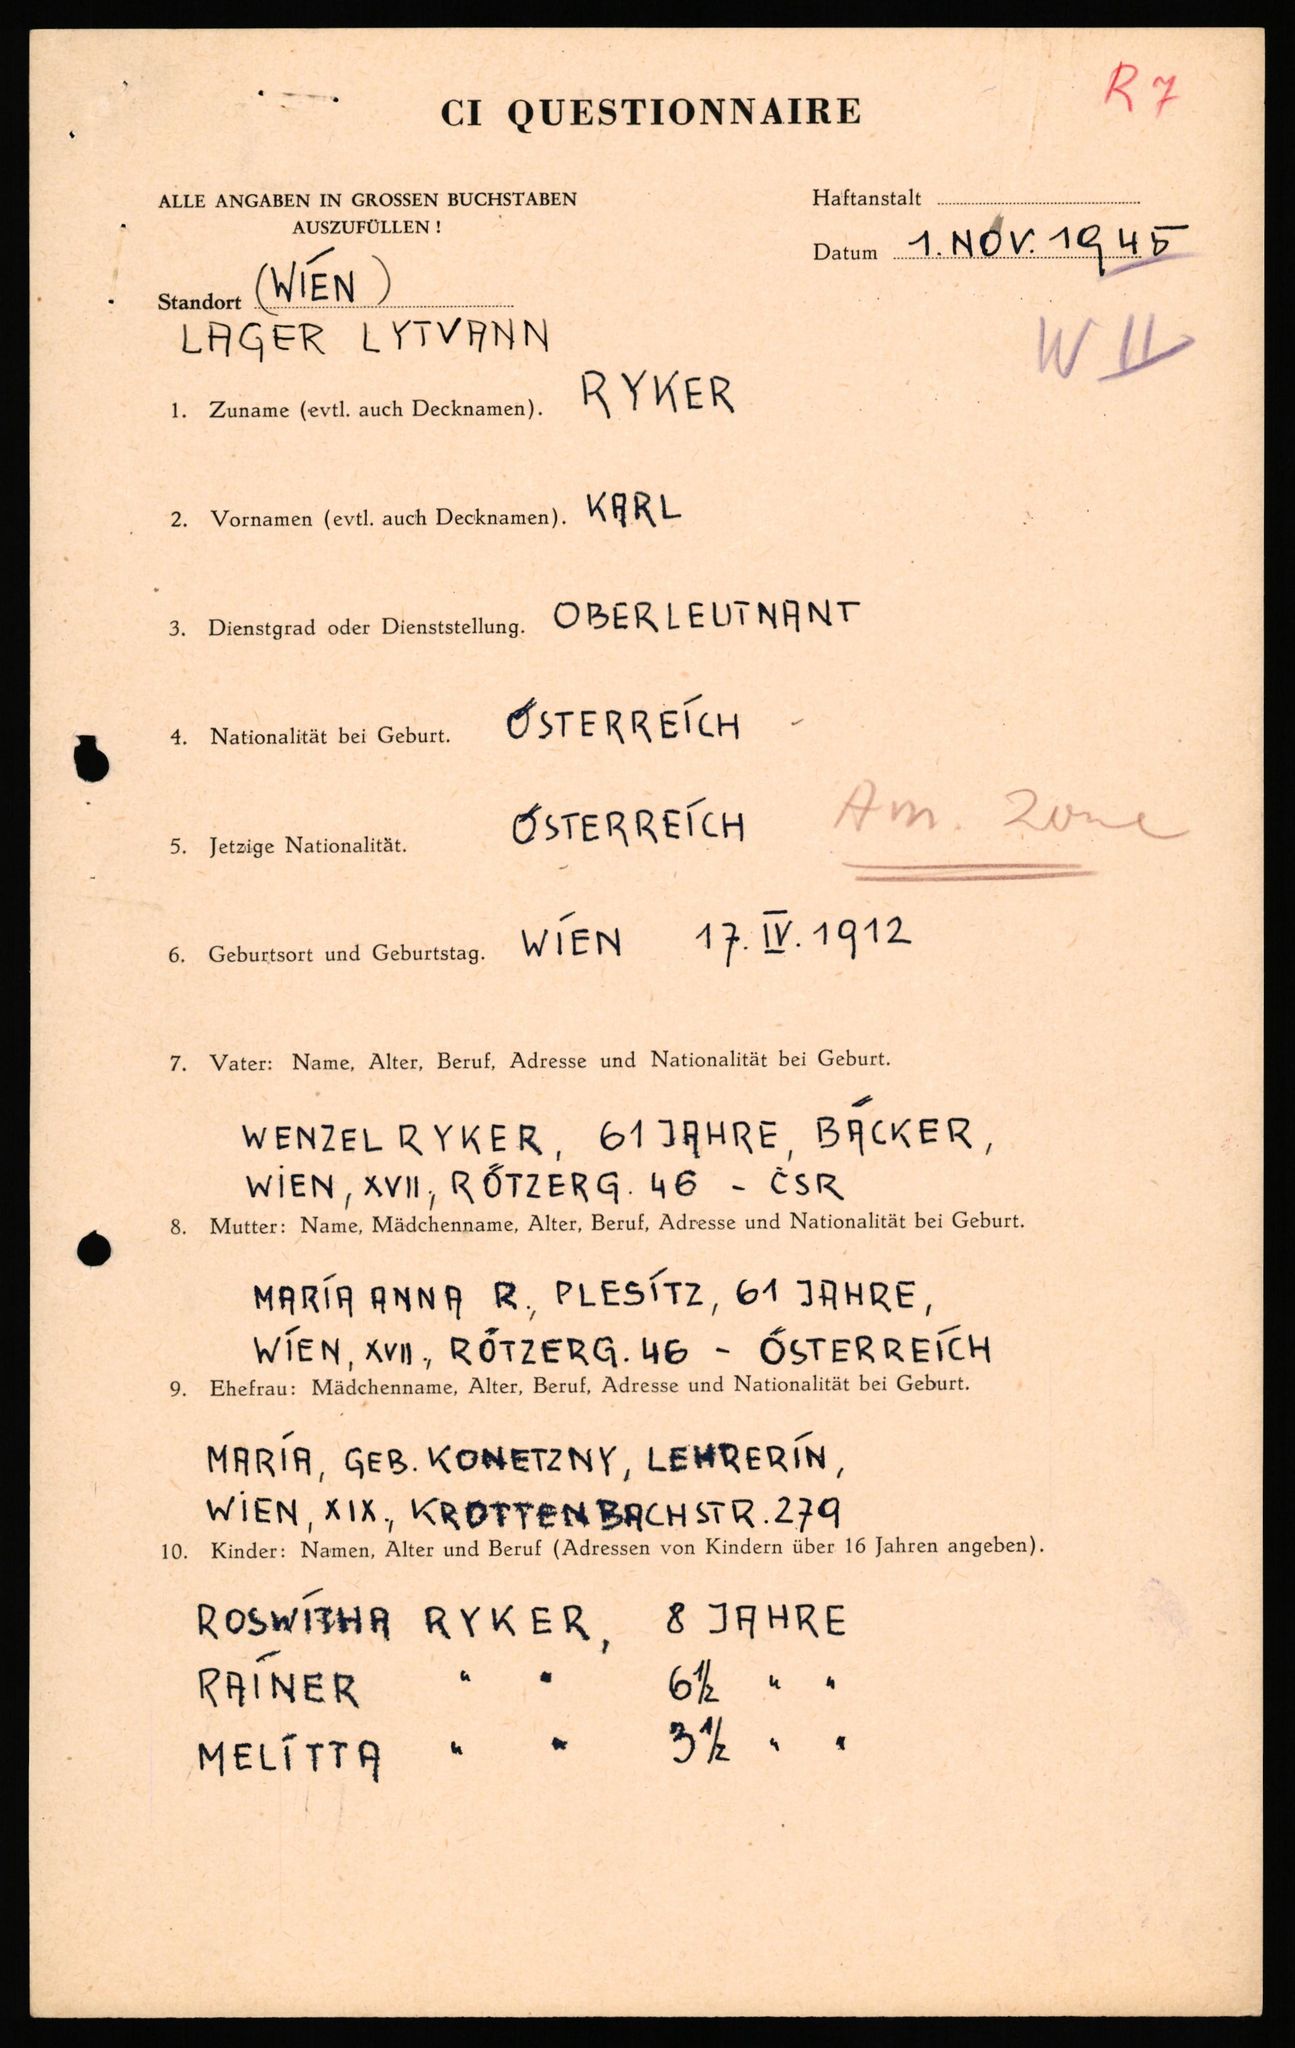 R 7
CI QUESTIONNAIRE
ALLE ANGABEN IN GROSSEN BUCHSTABEN
AUSZUFÜLLEN !
Haftanstalt
Datum 1. NOV. 1945
Standort (WIEN)
LAGER LYTVANN
W II
1. Zuname (evtl. auch Decknamen). RYKER
2. Vornamen (evtl. auch Decknamen). KARL
3. Dienstgrad oder Dienststellung. OBERLEUTNANT
4. Nationalität bei Geburt. ÖSTERREICH
5. Jetzige Nationalität. ÖSTERREICH Am. Zone
6. Geburtsort und Geburtstag. WIEN 17. IV. 1912
7. Vater: Name, Alter, Beruf, Adresse und Nationalität bei Geburt.
WENZEL RYKER, 61 JAHRE, BÄCKER,
WIEN, XVII., RÖTZERG. 46 - ČSR
8. Mutter: Name, Mädchenname, Alter, Beruf, Adresse und Nationalität bei Geburt.
MARIA ANNA R., PLESITZ, 61 JAHRE,
WIEN, XVII., RÖTZERG. 46 - ÖSTERREICH
9. Ehefrau: Mädchenname, Alter, Beruf, Adresse und Nationalität bei Geburt.
MARIA, GEB. KONETZNY, LEHRERIN,
WIEN, XIX., KROTTENBACHSTR. 279
10. Kinder: Namen, Alter und Beruf (Adressen von Kindern über 16 Jahren angeben).
ROSWITHA RYKER, 8 JAHRE
RAINER " " 6½ " "
MELITTA " " 3½ " "